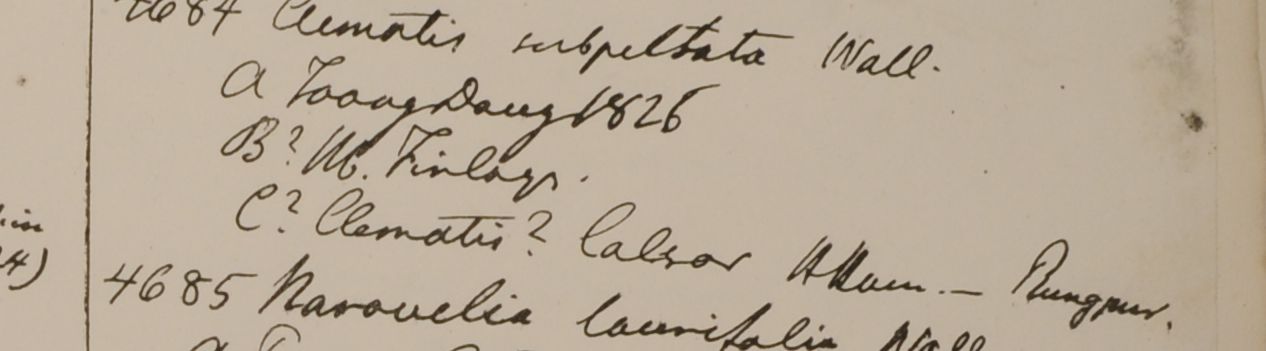 4684 Clematis subpeltata Wall.
A Toong Dong 1826
B? Hb. Finlays.
C? Clematis? Calsor HHam. — Rungpur.
4685 Naravelia laurifolia Wall